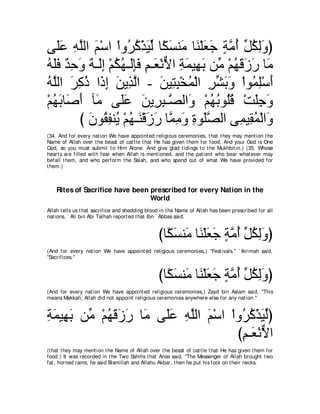 (وَلِكُلِّ أُمَّةٍ جَعَلْنَا مَنسَكًا لِّيَذْكُرُواْ اسْمَ اللَّهِ عَلَى
مَا رَزَقَهُمْ مِّن بَهِيمَةِ الاٌّنْعَـمِ فَإِلَـهُكُمْ إِلَـهٌ وَحِدٌ فَلَهُ
أَسْلِمُواْ وَبَشِّرِ الْمُخْبِتِينَ - الَّذِينَ إِذَا ذُكِرَ اللَّهُ
وَجِلَتْ قُلُوبُهُمْ وَالصَّـبِرِينَ عَلَى مَآ أَصَابَهُمْ
وَالْمُقِيمِى الصَّلَوةِ وَمِمَّا رَزَقْنَـهُمْ يُنفِقُونَ )
(34. And for every nation We have appointed religious ceremonies, that they may mention the
Name of Allah over the beast of cattle that He has given them for food. And your God is One
God, so you must submit to Him Alone. And give glad tidings to the Mukhbitin.) (35. Whose
hearts are filled with fear when Allah is mentioned, and the patient who bear whatever may
befall them, and who perform the Salah, and who spend out of what We have provided for
them.)
Rites of Sacrifice have been prescribed for every Nation in the
World
Allah tells us that sacrifice and shedding blood in the Name of Allah has been prescribed for all
nations. `Ali bin Abi Talhah reported that Ibn `Abbas said,
(وَلِكُلِّ أُمَّةٍ جَعَلْنَا مَنسَكًا)
(And for every nation We have appointed religious ceremonies,) "Festivals." `Ikrimah said,
"Sacrifices."
(وَلِكُلِّ أُمَّةٍ جَعَلْنَا مَنسَكًا)
(And for every nation We have appointed religious ceremonies,) Zayd bin Aslam said, "This
means Makkah; Allah did not appoint religious ceremonies anywhere else for any nation."
(لِّيَذْكُرُواْ اسْمَ اللَّهِ عَلَى مَا رَزَقَهُمْ مِّن بَهِيمَةِ
الاٌّنْعَـمِ)
(that they may mention the Name of Allah over the beast of cattle that He has given them for
food.) It was recorded in the Two Sahihs that Anas said, "The Messenger of Allah brought two
fat, horned rams; he said Bismillah and Allahu Akbar, then he put his foot on their necks.